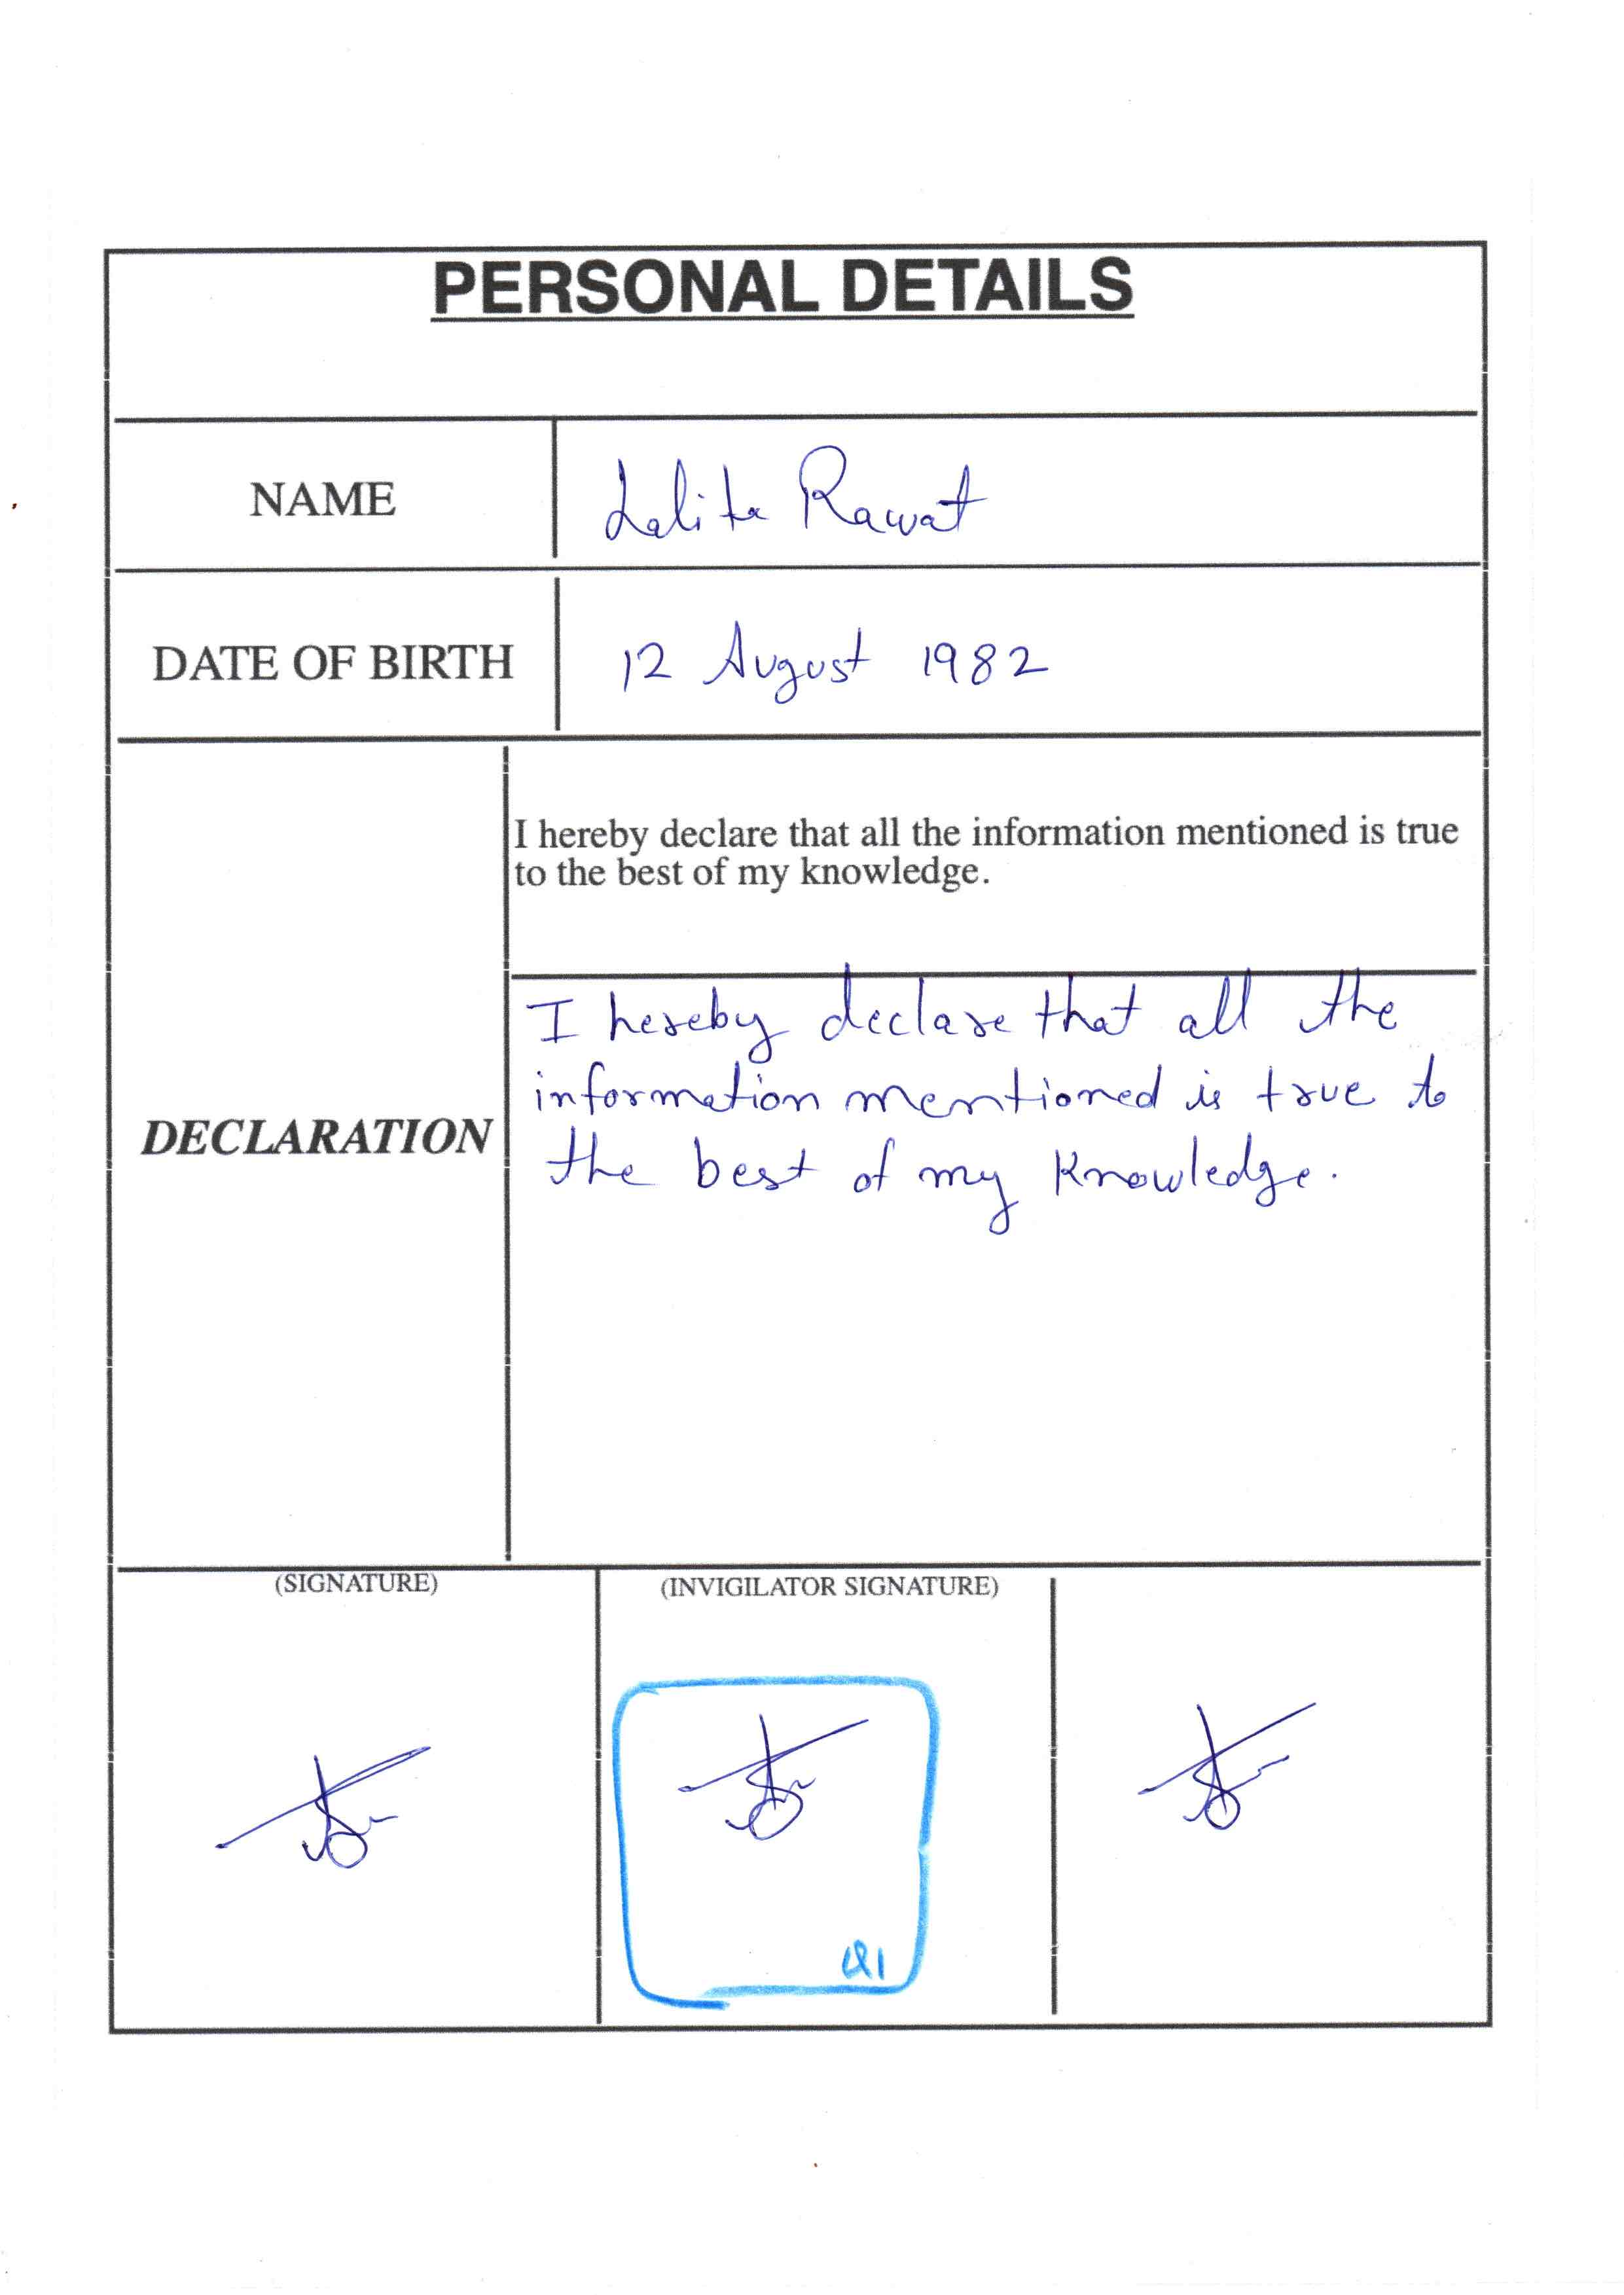 PERSONAL DETAILS
NAME
Lalita Rawat
DATE OF BIRTH
12 August 1982
I hereby declare that all the information mentioned is true
to the best of my knowledge.
DECLARATION
I hereby declare that all the
information mentioned is true to
the best of my knowledge.
(SIGNATURE)
(INVIGILATOR SIGNATURE)